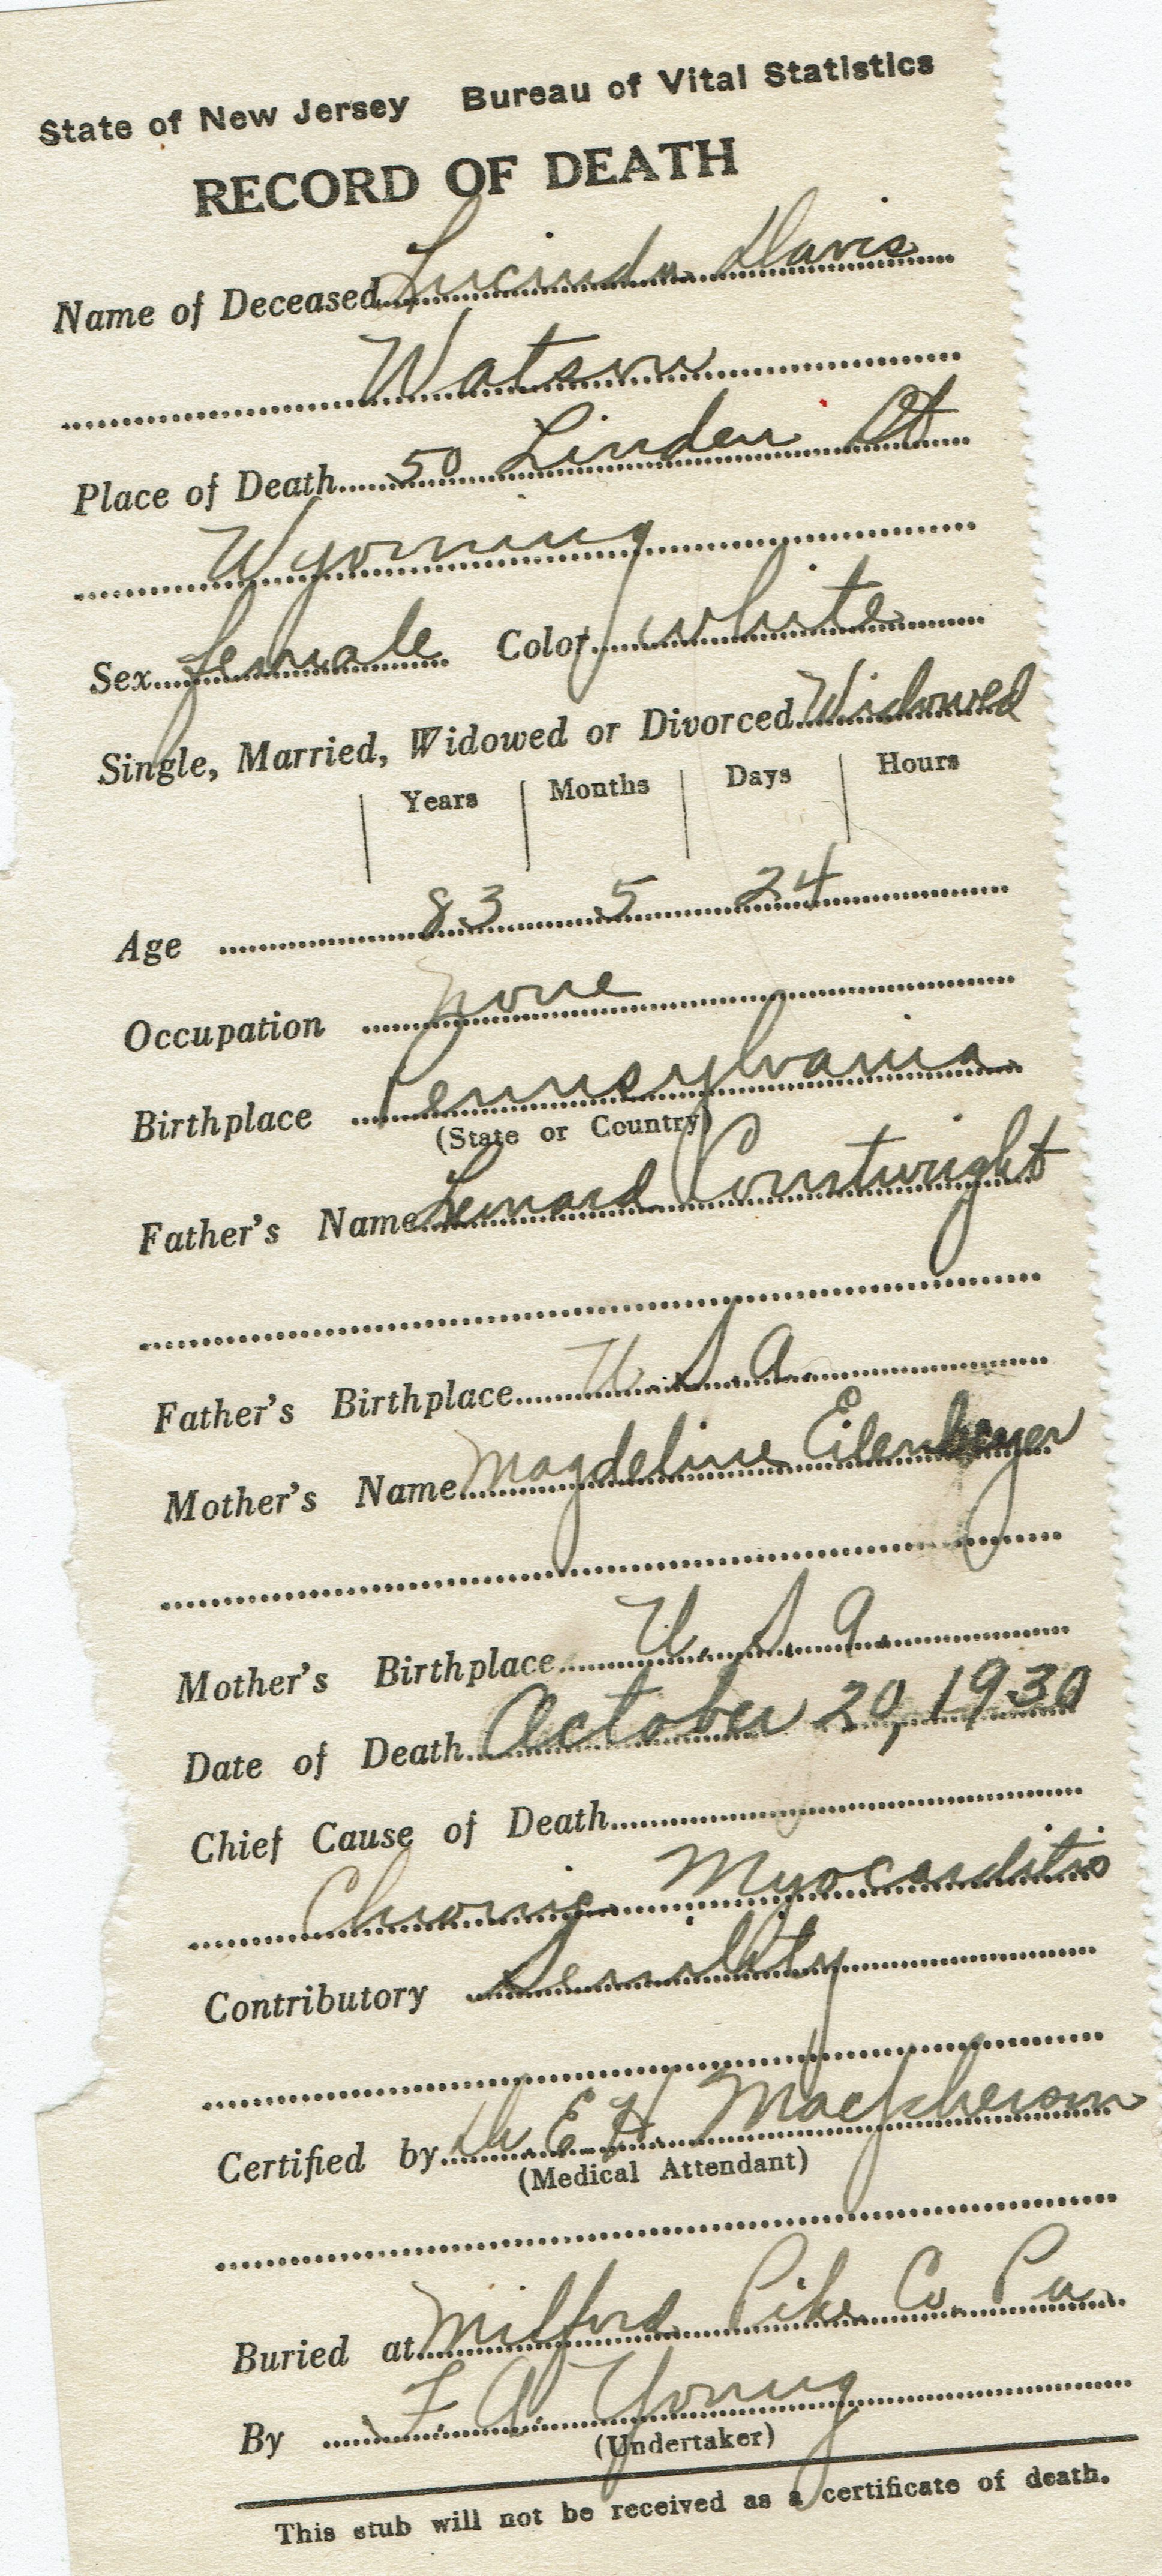 State of New Jersey Bureau of Vital Statistics
RECORD OF DEATH
Name of Deceased Lucinda Davis
Watson
Place of Death 50 Linden St
Wyoming
Sex female Color white
Single, Married, Widowed or Divorced Widowed
Years Months Days Hours
Age 83 5 24
Occupation none
Birthplace Pennsylvania
(State or Country)
Father's Name Leonard
Father's Birthplace U. S. A.
Mother's Name Magdeline
Mother's Birthplace U. S. A.
Date of Death October 20, 1930
Chief Cause of Death
Chronic Myocarditis
Contributory Senility
Certified by Dr. E. H. Macpherson
(Medical Attendant)
Buried at Milford Pike Co. Pa.
By F. A. Young
(Undertaker)
This stub will not be received as a certificate of death.